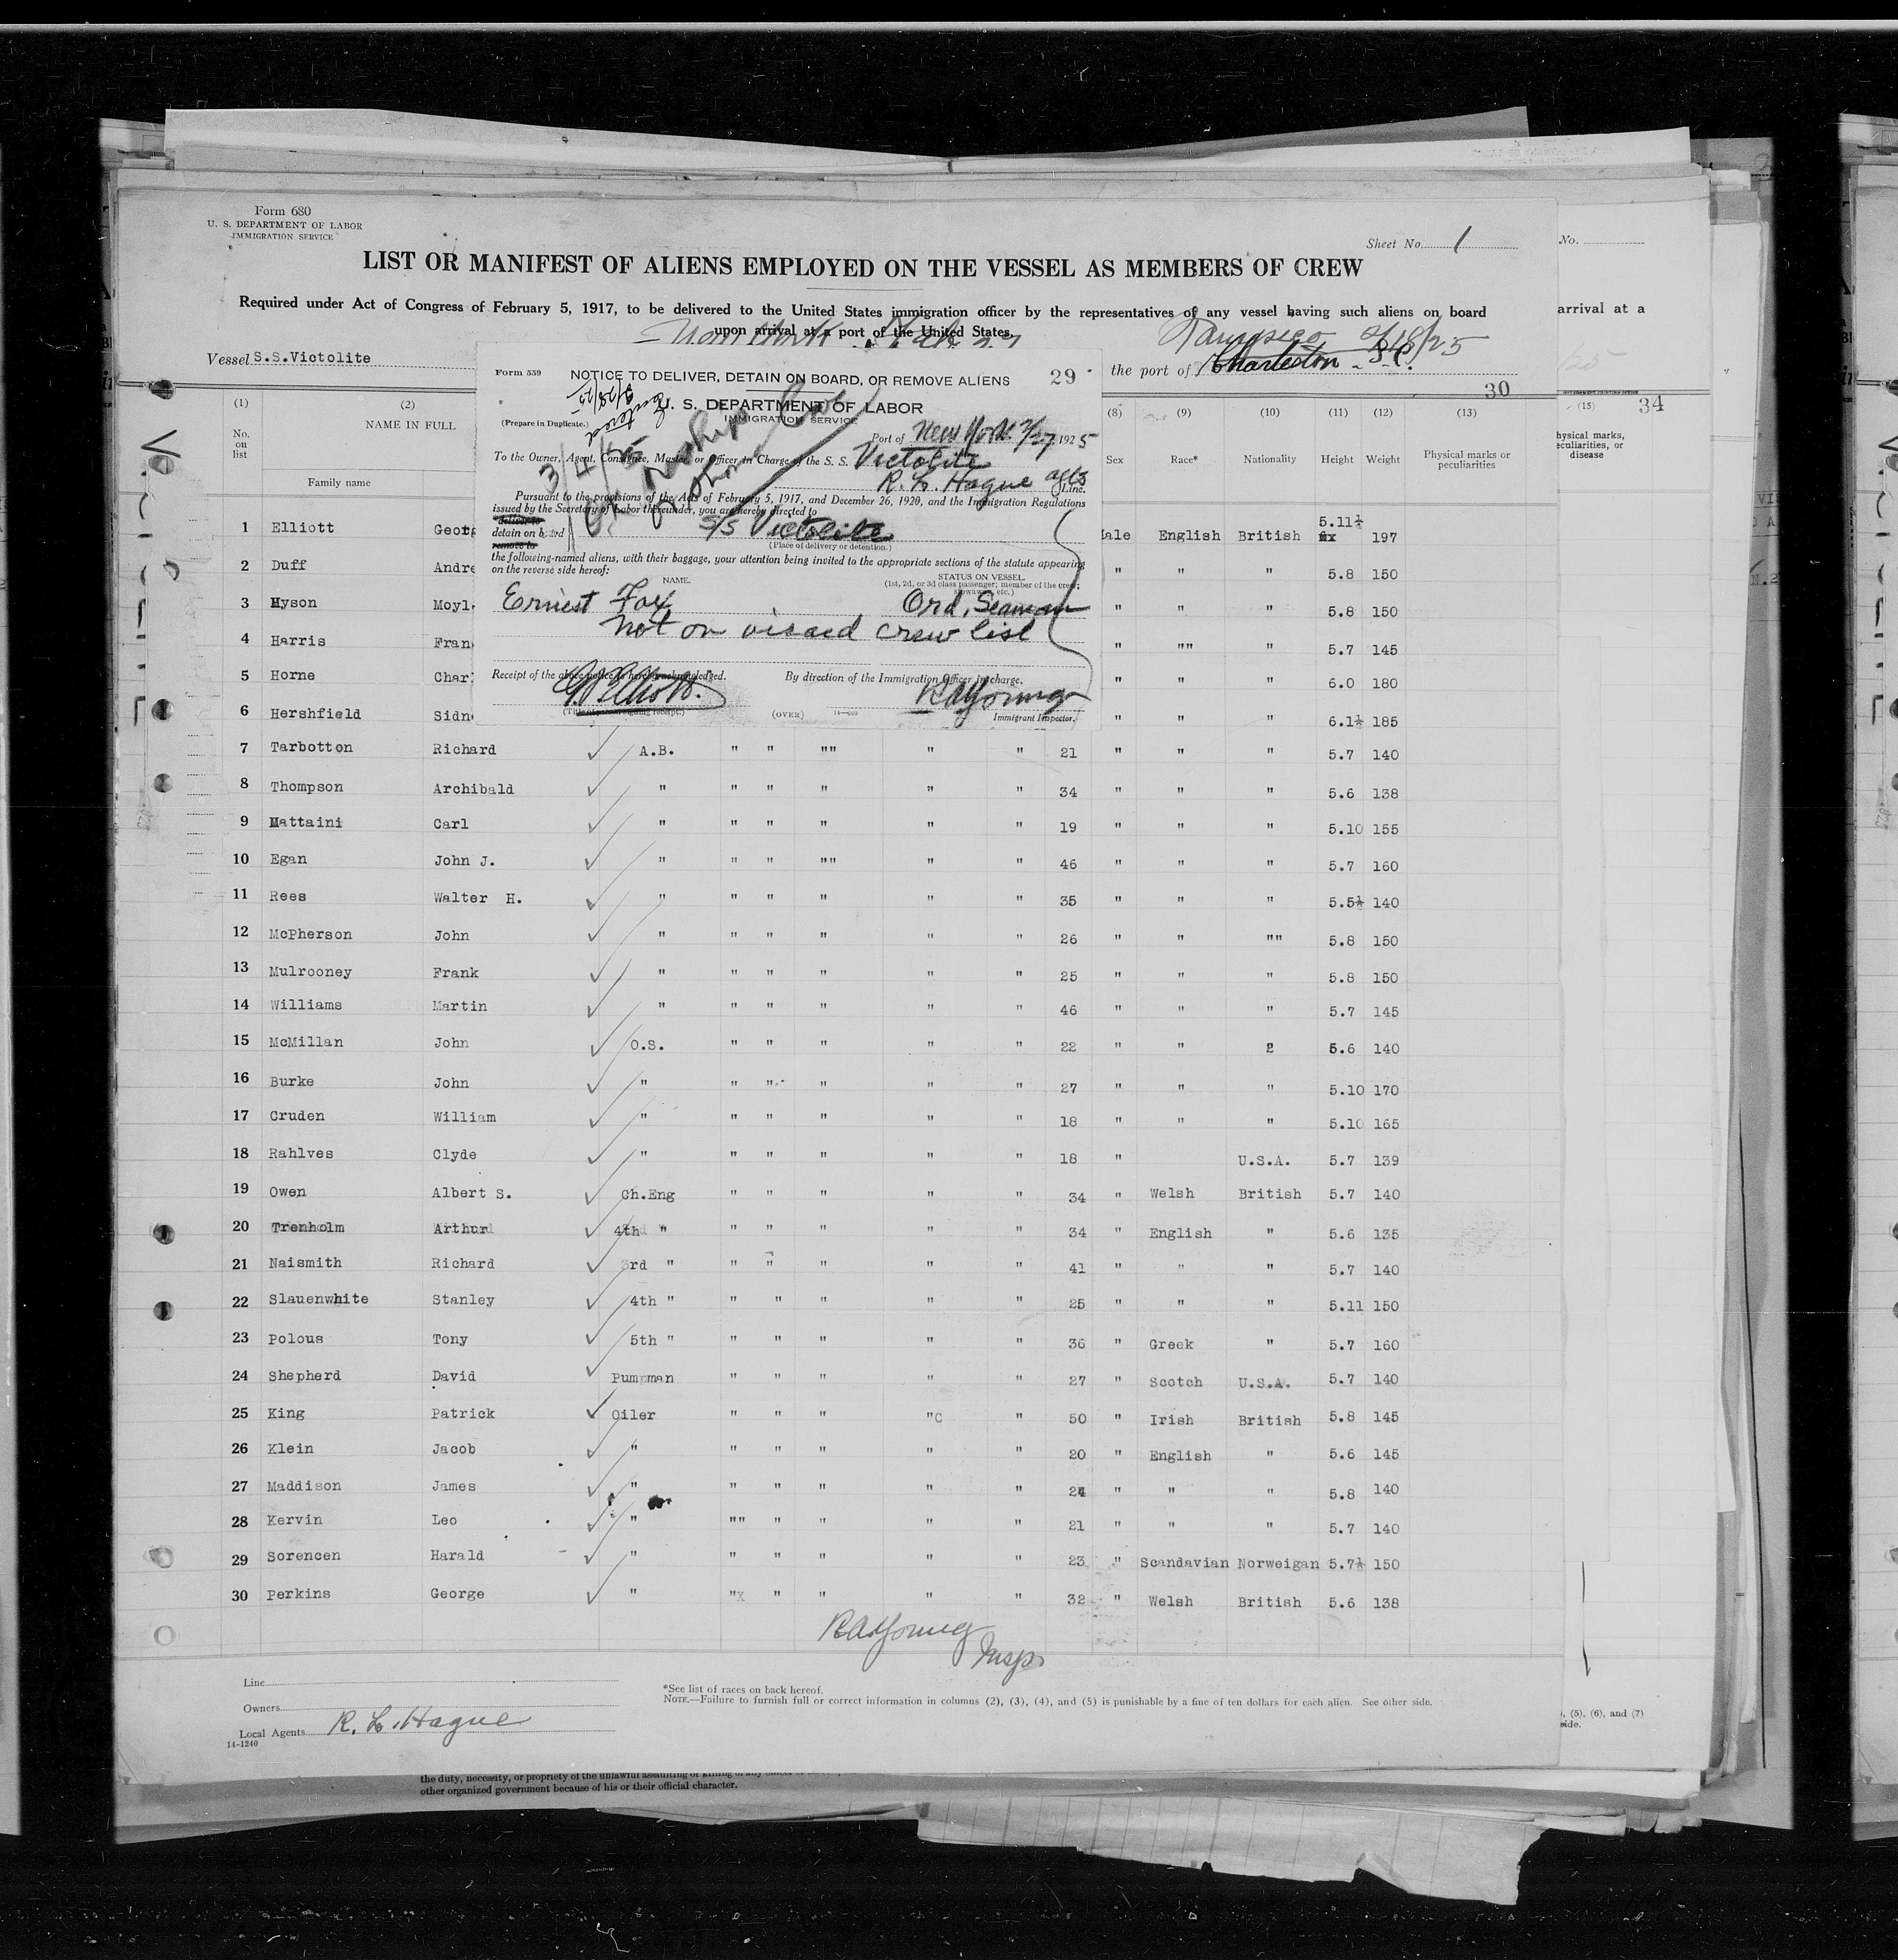 Form 680
U. S. DEPARTMENT OF LABOR
IMMIGRATION SERVICE
Sheet No. 1
No.
LIST OR MANIFEST OF ALIENS EMPLOYED ON THE VESSEL AS MEMBERS OF CREW
Required under Act of Congress of February 5, 1917, to be delivered to the United States immigration officer by the representatives of any vessel having such aliens on board
arrival at a
upon arrival at a port of the United States.
Tampico 2/18/25
Vessel S.S.Victolite
the port of Charleston - S.C.
Form 559
NOTICE TO DELIVER, DETAIN ON BOARD, OR REMOVE ALIENS
29
U. S. DEPARTMENT OF LABOR
IMMIGRATION SERVICE
(Prepare in Duplicate.)
Port of New York 2/27, 1925
To the Owner, Agent, Consignee, Master, or Officer in Charge of the S. S. Victolite
R. L. Hague agts Line.
Pursuant to the provisions of the Acts of February 5, 1917, and December 26, 1920, and the Immigration Regulations
issued by the Secretary of Labor thereunder, you are hereby directed to
deliver to
detain on board S/S Victolite
remove to
(Place of delivery or detention.)
the following-named aliens, with their baggage, your attention being invited to the appropriate sections of the statute appearing
on the reverse side hereof:
NAME.
STATUS ON VESSEL.
(1st, 2d, or 3d class passenger; member of the crew;
stowaway, etc.)
Ernest Fox Ord. Seaman
not on visaed crew list
Receipt of the above notice is hereby acknowledged.
By direction of the Immigration Officer in charge.
G Elliott.
RA Young
(Title of person signing receipt.)
(OVER)
Immigrant Inspector.
3/4/25
30
34
(1) (2) (8) (9) (10) (11) (12) (13) (15)
No. on list
NAME IN FULL
Family name
Sex Race* Nationality Height Weight Physical marks or peculiarities
hysical marks,
eculiarities, or
disease
1 Elliott Georg ale English British 5.11½ 197
2 Duff Andre " " " 5.8 150
3 Hyson Moyl " " " 5.8 150
4 Harris Fran " "" " 5.7 145
5 Horne Char " " " 6.0 180
6 Hershfield Sidn " " " 6.1½ 185
7 Tarbotton Richard A.B. " " "" " " 21 " " " 5.7 140
8 Thompson Archibald " " " " " " 34 " " " 5.6 138
9 Mattaini Carl " " " " " " 19 " " " 5.10 155
10 Egan John J. " " " "" " " 46 " " " 5.7 160
11 Rees Walter H. " " " " " " 35 " " " 5.5½ 140
12 McPherson John " " " " " " 26 " " "" 5.8 150
13 Mulrooney Frank " " " " " " 25 " " " 5.8 150
14 Williams Martin " " " " " " 46 " " " 5.7 145
15 McMillan John O.S. " " " " " 22 " " 2 5.6 140
16 Burke John " " " " " " 27 " " " 5.10 170
17 Cruden William " " " " " " 18 " " " 5.10 165
18 Rahlves Clyde " " " " " " 18 " U.S.A. 5.7 139
19 Owen Albert S. Ch.Eng " " " " " 34 " Welsh British 5.7 140
20 Trenholm Arthur 4th " " " " " " 34 " English " 5.6 135
21 Naismith Richard 3rd " " " " " " 41 " " " 5.7 140
22 Slauenwhite Stanley 4th " " " " " " 25 " " " 5.11 150
23 Polous Tony 5th " " " " " " 36 " Greek " 5.7 160
24 Shepherd David Pumpman " " " " " 27 " Scotch U.S.A. 5.7 140
25 King Patrick Oiler " " " "C " 50 " Irish British 5.8 145
26 Klein Jacob " " " " " " 20 " English " 5.6 145
27 Maddison James " " " " " " 24 " " " 5.8 140
28 Kervin Leo " "" " " " " 21 " " " 5.7 140
29 Sorencen Harald " " " " " " 23 " Scandavian Norweigan 5.7½ 150
30 Perkins George " "x " " " " 32 " Welsh British 5.6 138
RA Young
Insp
Line
Owners
Local Agents R. L. Hague
14-1240
*See list of races on back hereof.
NOTE.—Failure to furnish full or correct information in columns (2), (3), (4), and (5) is punishable by a fine of ten dollars for each alien. See other side.
(5), (6), and (7)
side.
the duty, necessity, or propriety of the unlawful assaulting or killing of any
other organized government because of his or their official character.